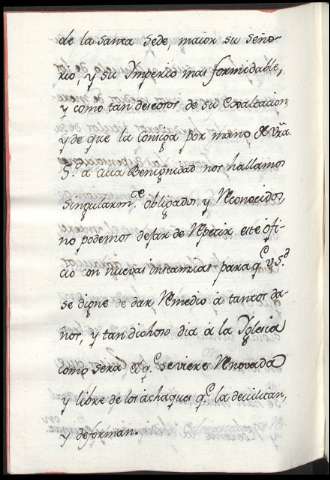 de la Santa Sede, maior su seño-
rio, y su Imperio mas formidable,
y como tan deseosos de su Exaltacion
y de que la consiga por mano de Vrã
S.d a cuia Benignidad nos hallamos
singularm.te obligados, y Reconocidos
no podemos dejar de Repetir este ofi-
cio con nuevas instancias para q.e V. S.d
se digne de dar Remedio â tantos da-
ños, y tan dichoso dia â la Yglesia
como será el q.e se viere Renovada
y libre de los achaques q.e la devilitan,
y deforman.